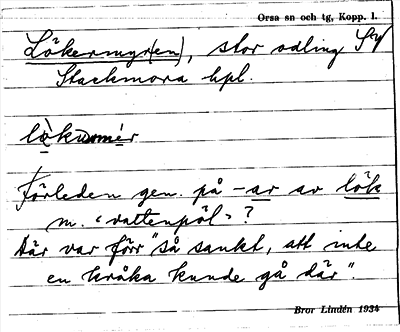 Orsa sn och tg, Kopp. l.
Lökermyr(en), stor odling SV
Stackmora hpl.
Förleden gen. på -ar av lök
m. "vattenpöl"?
Där var förr "så sankt, att inte
en kråka kunde gå där".
Bror Lindén 1934